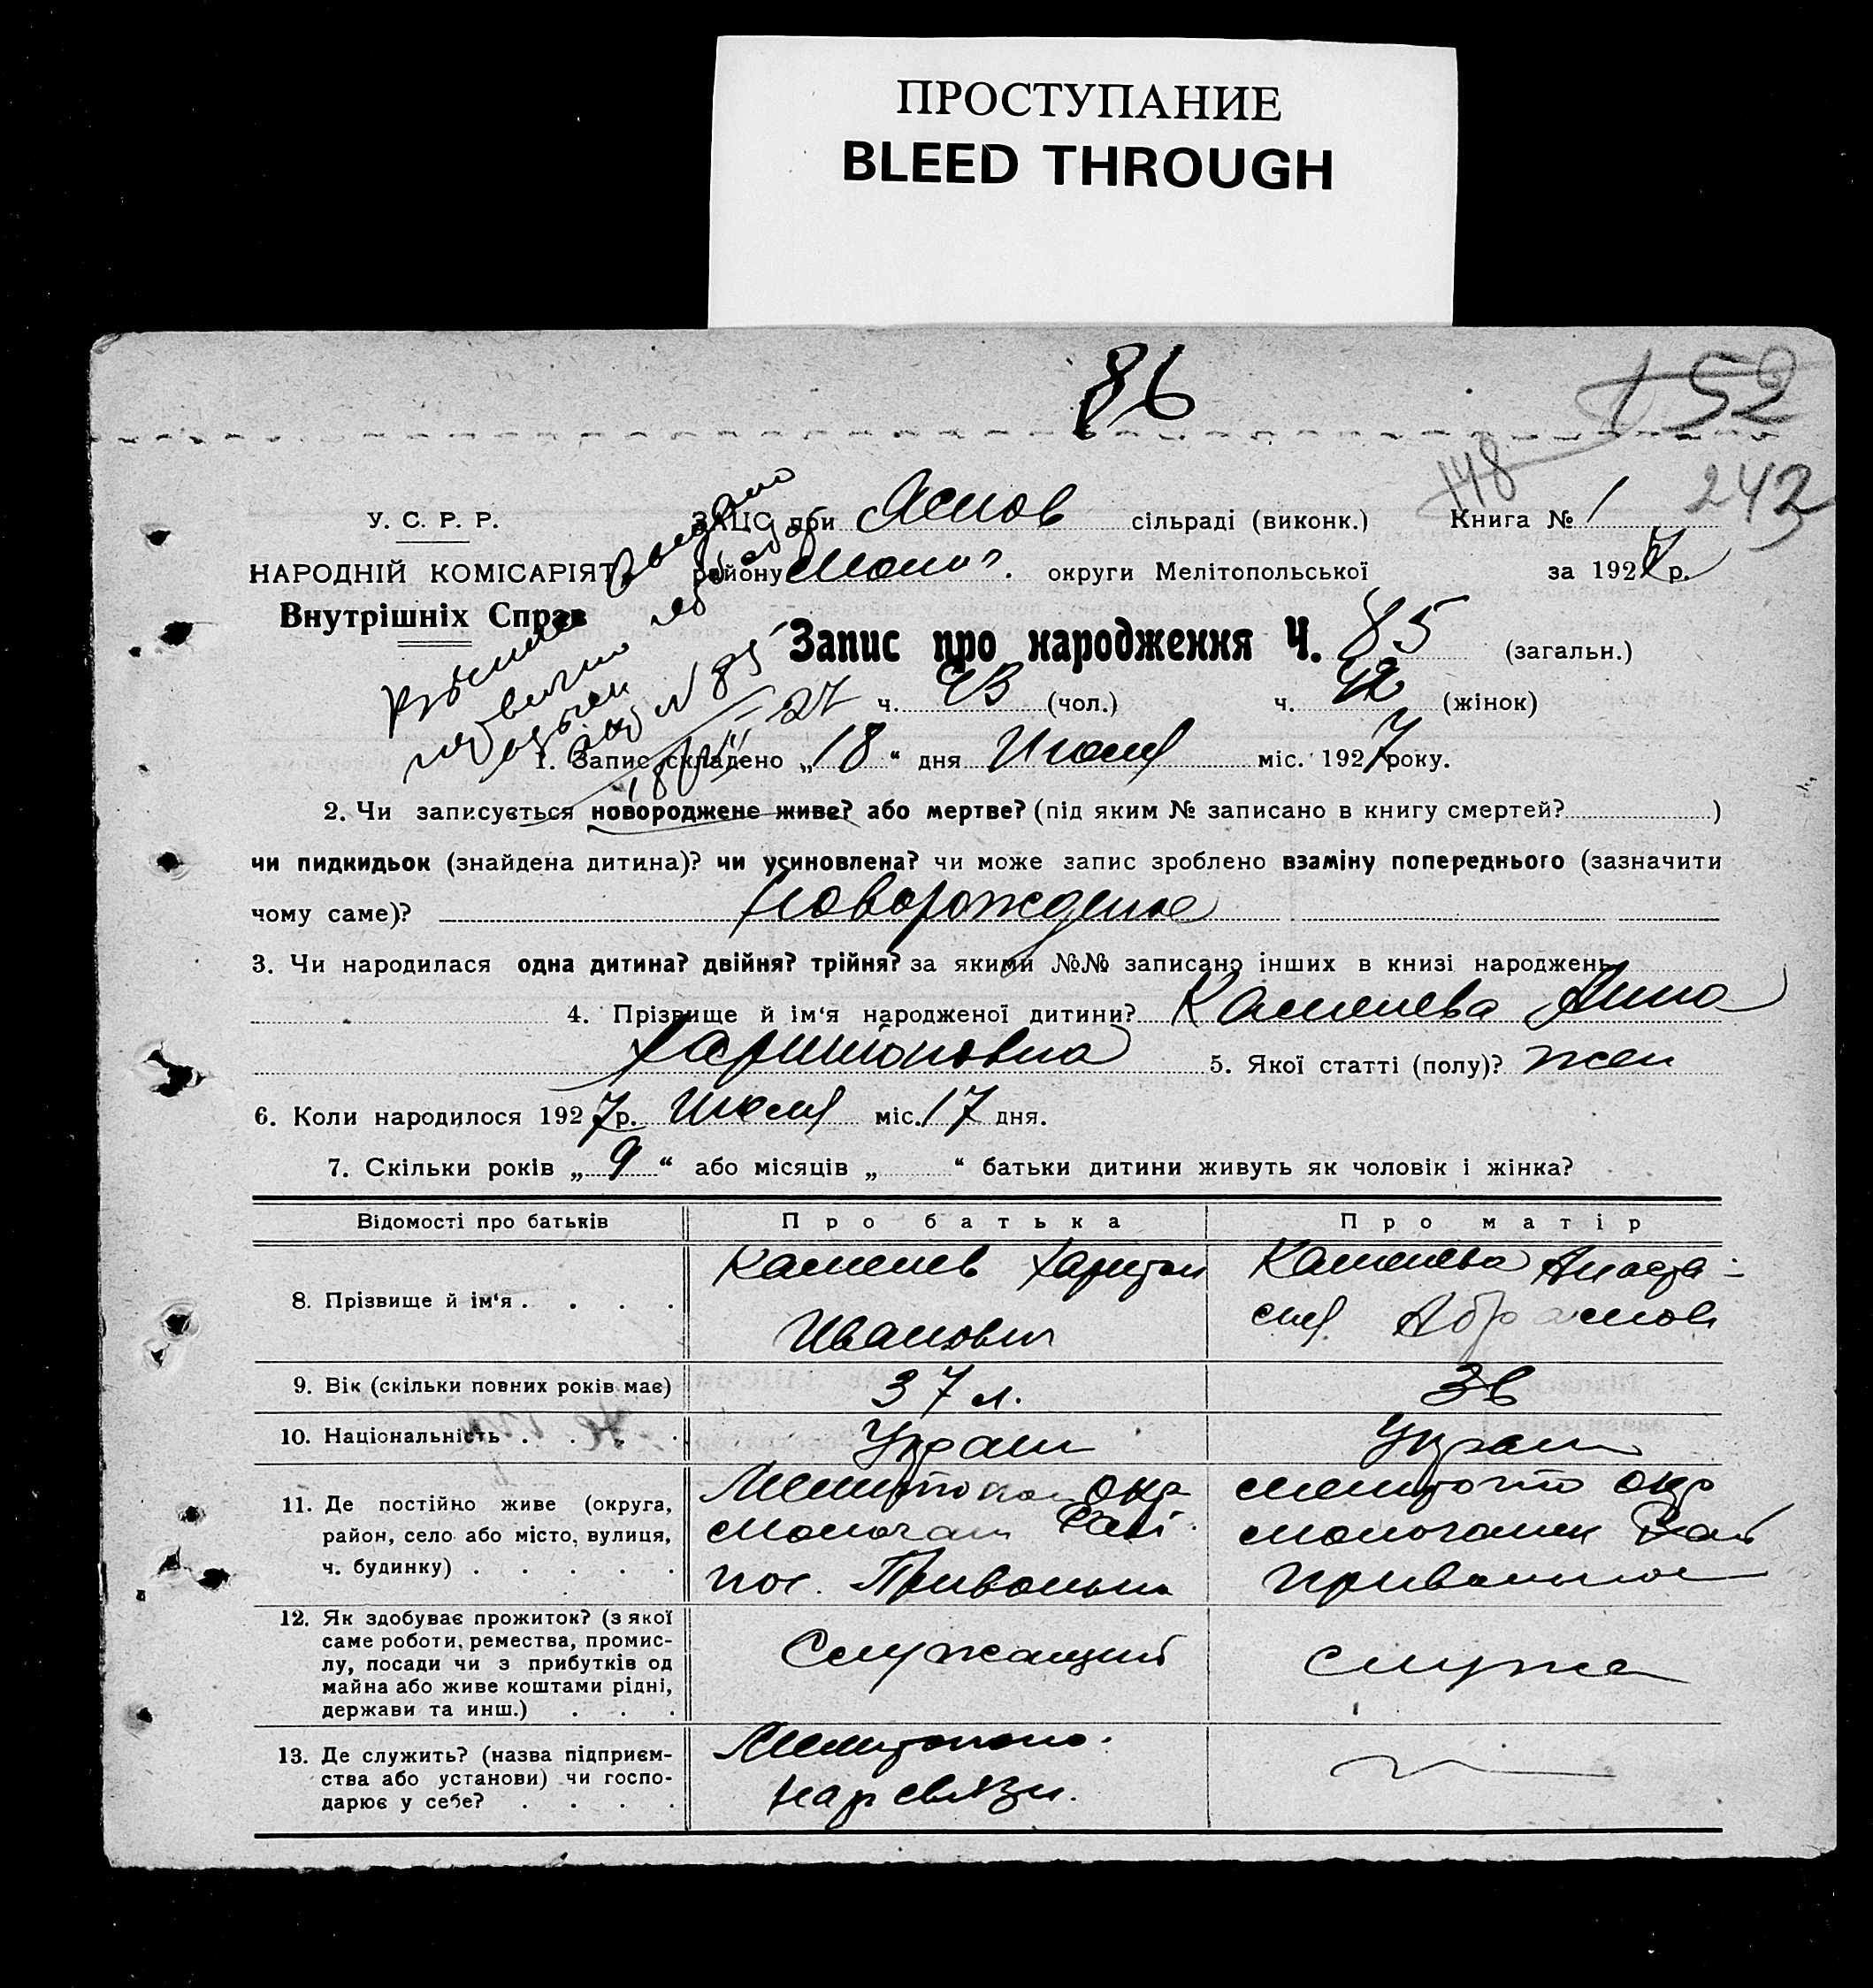 ПРОСТУПАНИЕ
BLEED THROUGH
86
152
148
242
У. С. Р. Р.
ЗАЦС при Яснов сільраді (виконк.) Книга № 1
НАРОДНІЙ КОМІСАРІЯТ
району округи Мелітопольської за 1927 р.
Внутрішніх Справ
Запис про народження Ч. 85 (загальн.)
ч. 43 (чол.) ч. 42 (жінок)
1. Запис складено „18“ дня Июля міс. 1927 року.
2. Чи записується новороджене живе? або мертве? (під яким № записано в книгу смертей? )
чи пидкидьок (знайдена дитина)? чи усиновлена? чи може запис зроблено взаміну попереднього (зазначити
чому саме)? Новорожденое
3. Чи народилася одна дитина? двійня? трійня? за якими №№ записано інших в книзі народжень
4. Прізвище й ім‘я народженої дитини? Каменева Анна
Харитоновна 5. Якої статті (полу)? жен
6. Коли народилося 1927 р. Июля міс. 17 дня.
7. Скільки років „9“ або місяців „ “ батьки дитини живуть як чоловік і жінка?
Відомості про батьків Про батька Про матір
8. Прізвище й ім‘я . . . . Каменев Харитон Каменева Анаста-
Иванович сия Абрамов
9. Вік (скільки повних років має) 37 л. 36
10. Національність . . . . Украин Украин
11. Де постійно живе (округа, Мелитопол окр Мелитопо окр
район, село або місто, вулиця, Молочан Рай. Молочанск Рай
ч. будинку) . . . . . пос. Привольн Привольное
12. Як здобуває прожиток? (з якої
саме роботи, ремества, промис-
лу, посади чи з прибутків од Служащий служа
майна або живе коштами рідні,
держави та инш.) . . .
13. Де служить? (назва підприєм- Мелитополь.
ства або установи) чи госпо-
дарює у себе? . . . . Нар связи.